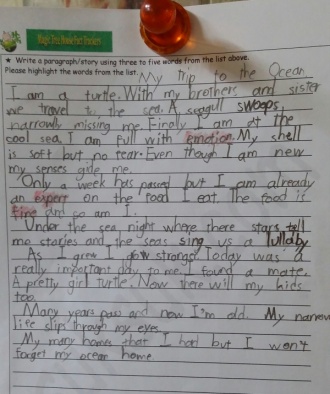 Magic Tree House Fact Trackers
★ Write a paragraph/story using three to five words from the list above.
Please highlight the words from the list.
My trip to the Ocean
I am a turtle. With my brothers and sister
we travel to the sea. A seagull swoops,
narrowly missing me. Finoly I am at the
cool sea. I am full with emotion. My shell
is soft but no tear. Even though I am new
my senses gide me.
Only a week has passed but I am already
an expert on the food I eat. The food is
fine and so am I.
Under the sea, night where there stars tell
me stories and the seas sing us a lullaby
As I grow I grow strange. Today was a
really important day to me. I found a mate.
A pretty girl turtle. Now there will my kids
too.
Many years pass and now I'm old. My narrow
life slip through my eyes.
My many homes that I had but I won't
forget my ocean home